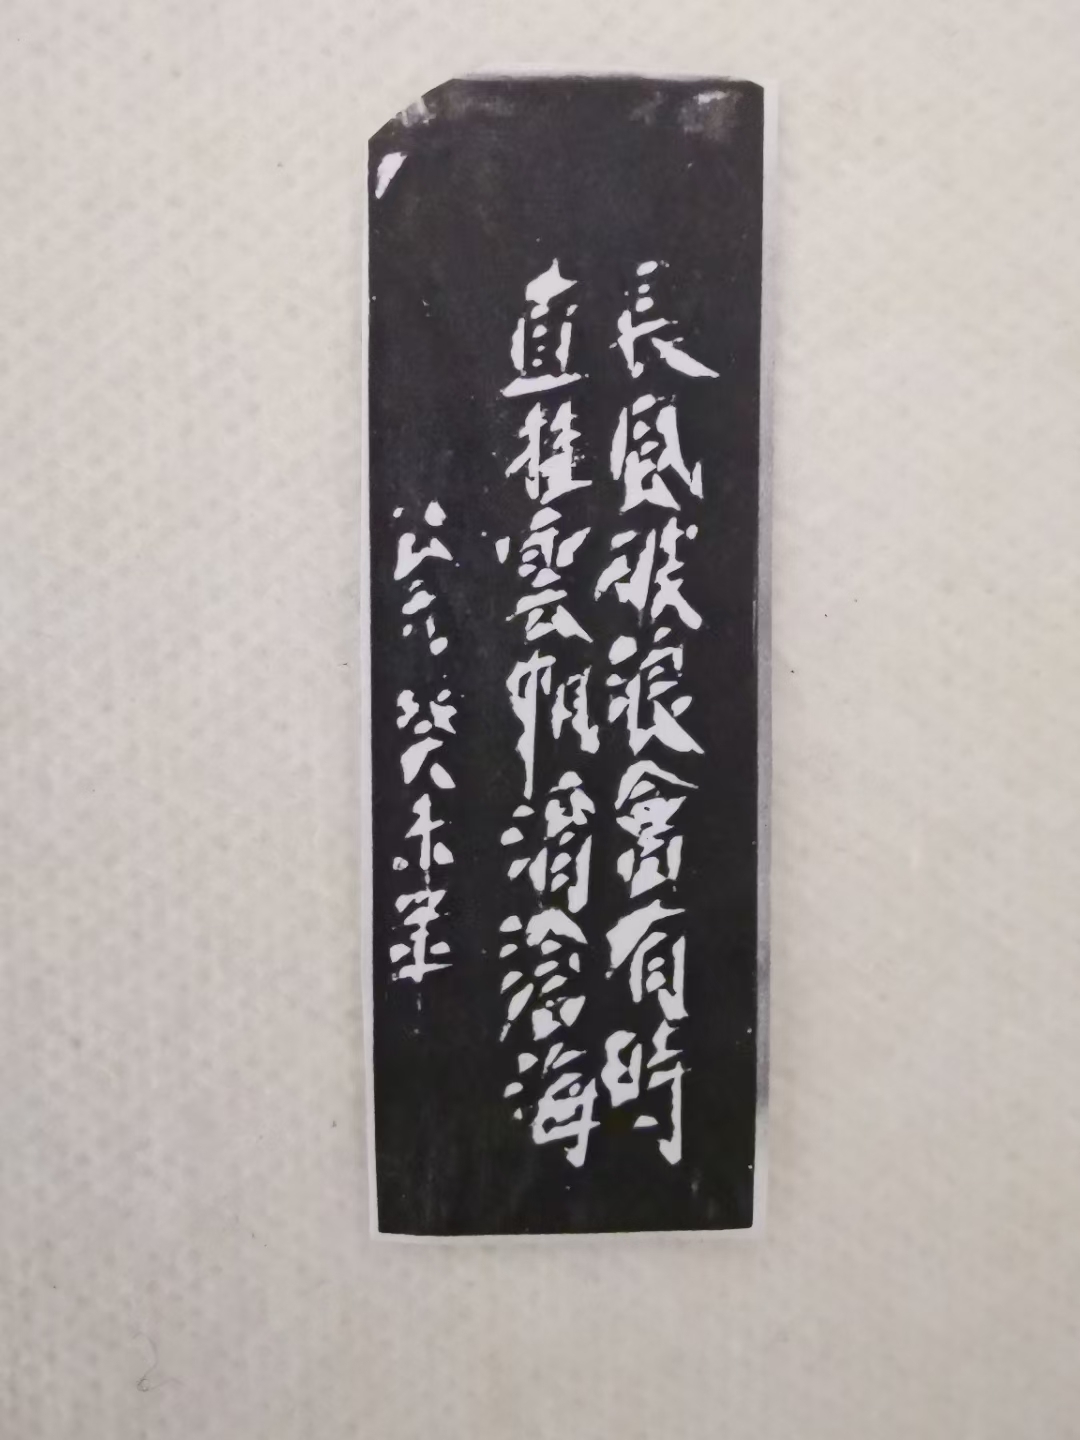 長風破浪會有時
直挂雲帆濟滄海
癸未